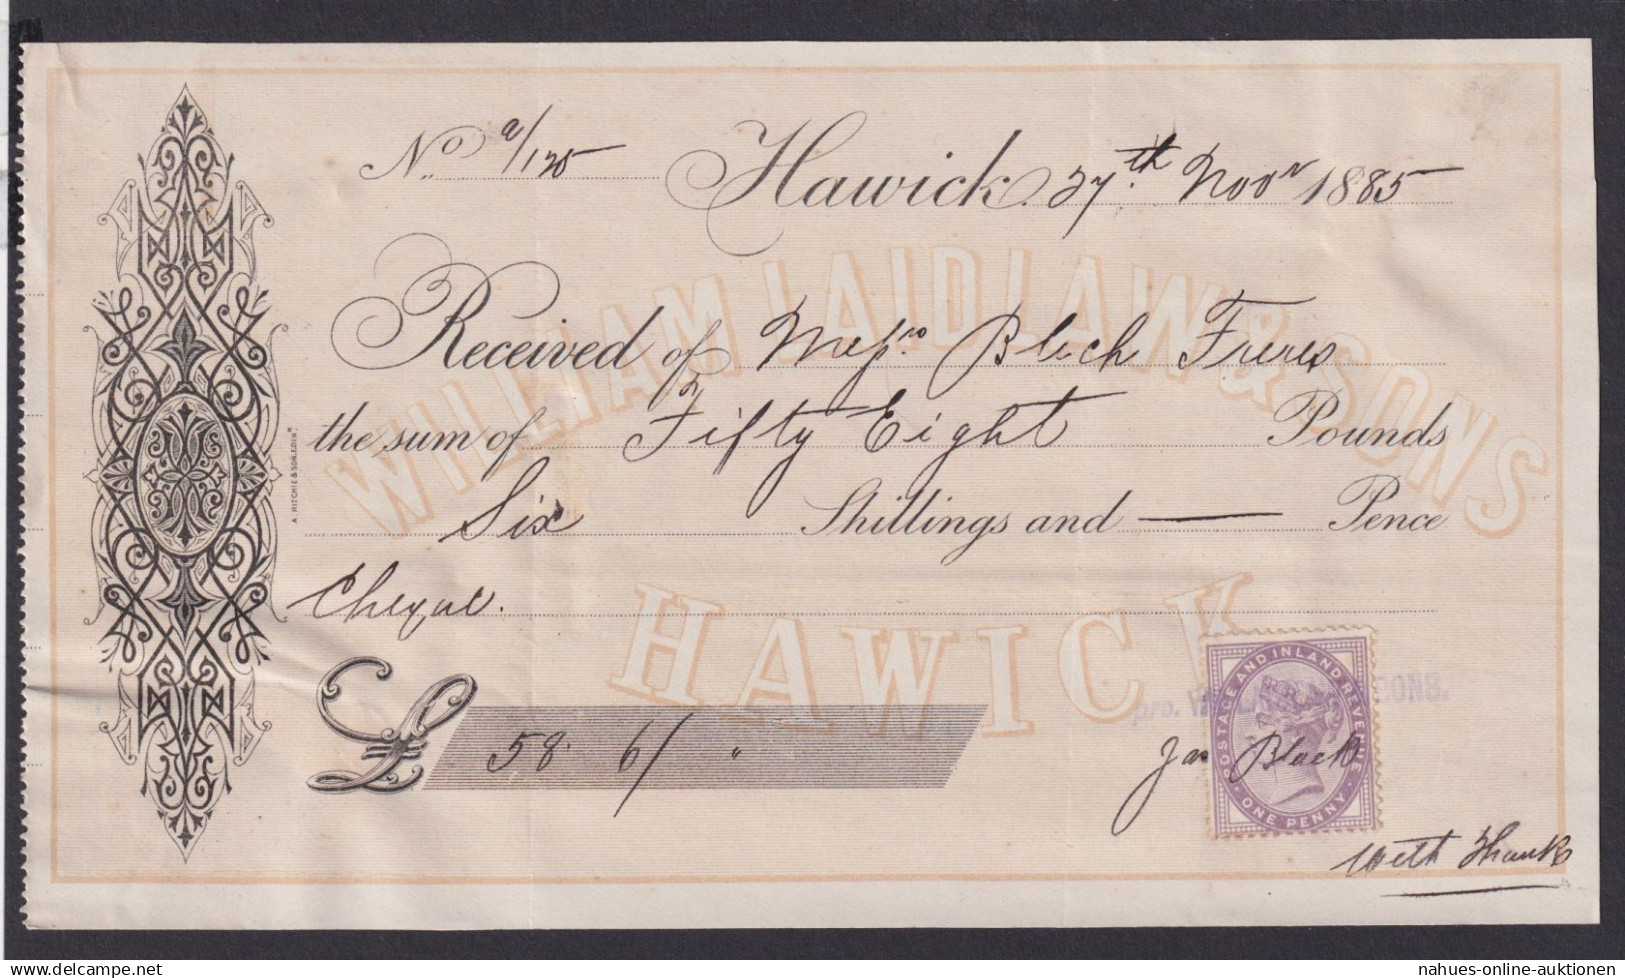 No. a/125 Hawick 27th Novr 1885
WILLIAM LAIDLAW & SONS
Received of Messrs Blech Freres
the sum of Fifty Eight Pounds
Six Shillings and — Pence
A. RITCHIE & SON, EDINR.
Cheque.
HAWICK
£ 58. 6/ "
pro. W SONS.
POSTAGE AND INLAND REVENUE
ONE PENNY
Jas Black
With Thanks
nahues-online-auktionen